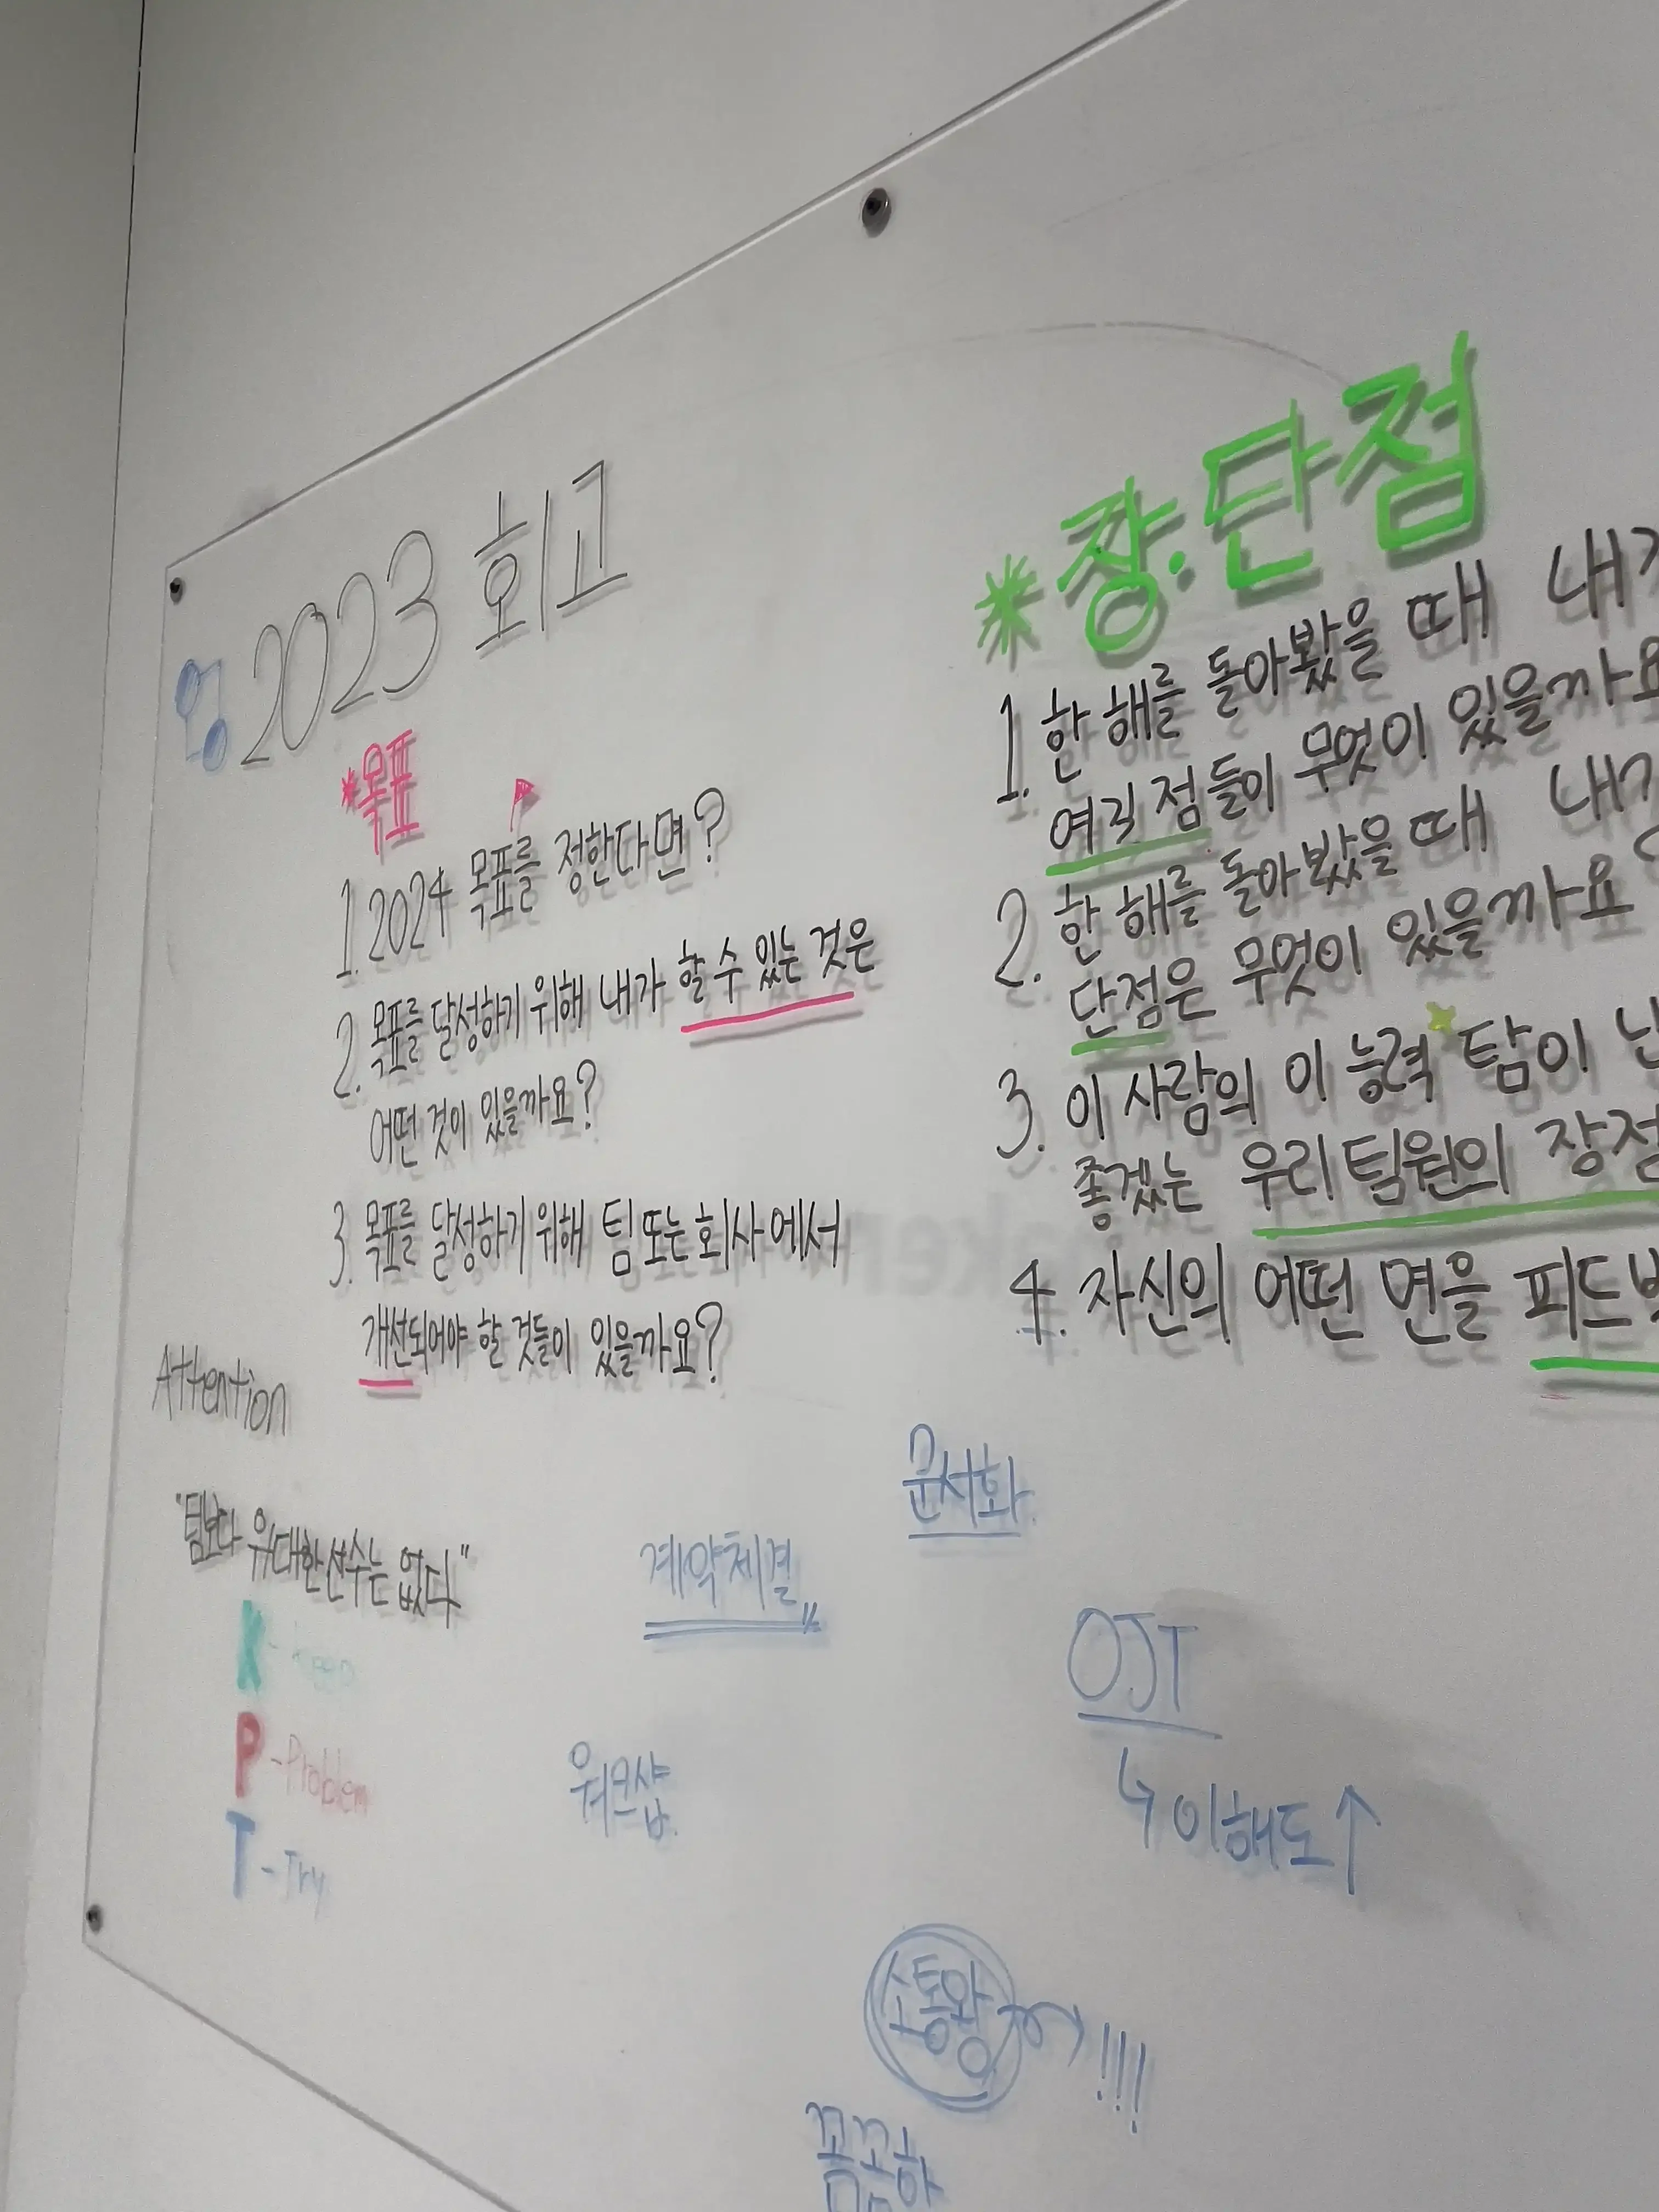 2023 회고
*목표
1. 2024 목표를 정한다면?
2. 목표를 달성하기 위해 내가 할 수 있는 것은
어떤 것이 있을까요?
3. 목표를 달성하기 위해 팀 또는 회사에서
개선되어야 할 것들이 있을까요?
*장·단점
1. 한 해를 돌아봤을 때
여긱 점들이 무엇이 있을까요
2. 한 해를 돌아봤을 때
단점은 무엇이 있을까요?
3. 이 사람의 이 능력 탐이
좋겠는 우리 팀원의 장점
4. 자신의 어떤 면을
Attention
"팀보다 위대한 선수는 없다"
K - Keep
P - Problem
T - Try
문서화
계약체결
워크샵
OJT
↳ 이해도↑
소통왕 !!!
꼼꼬함